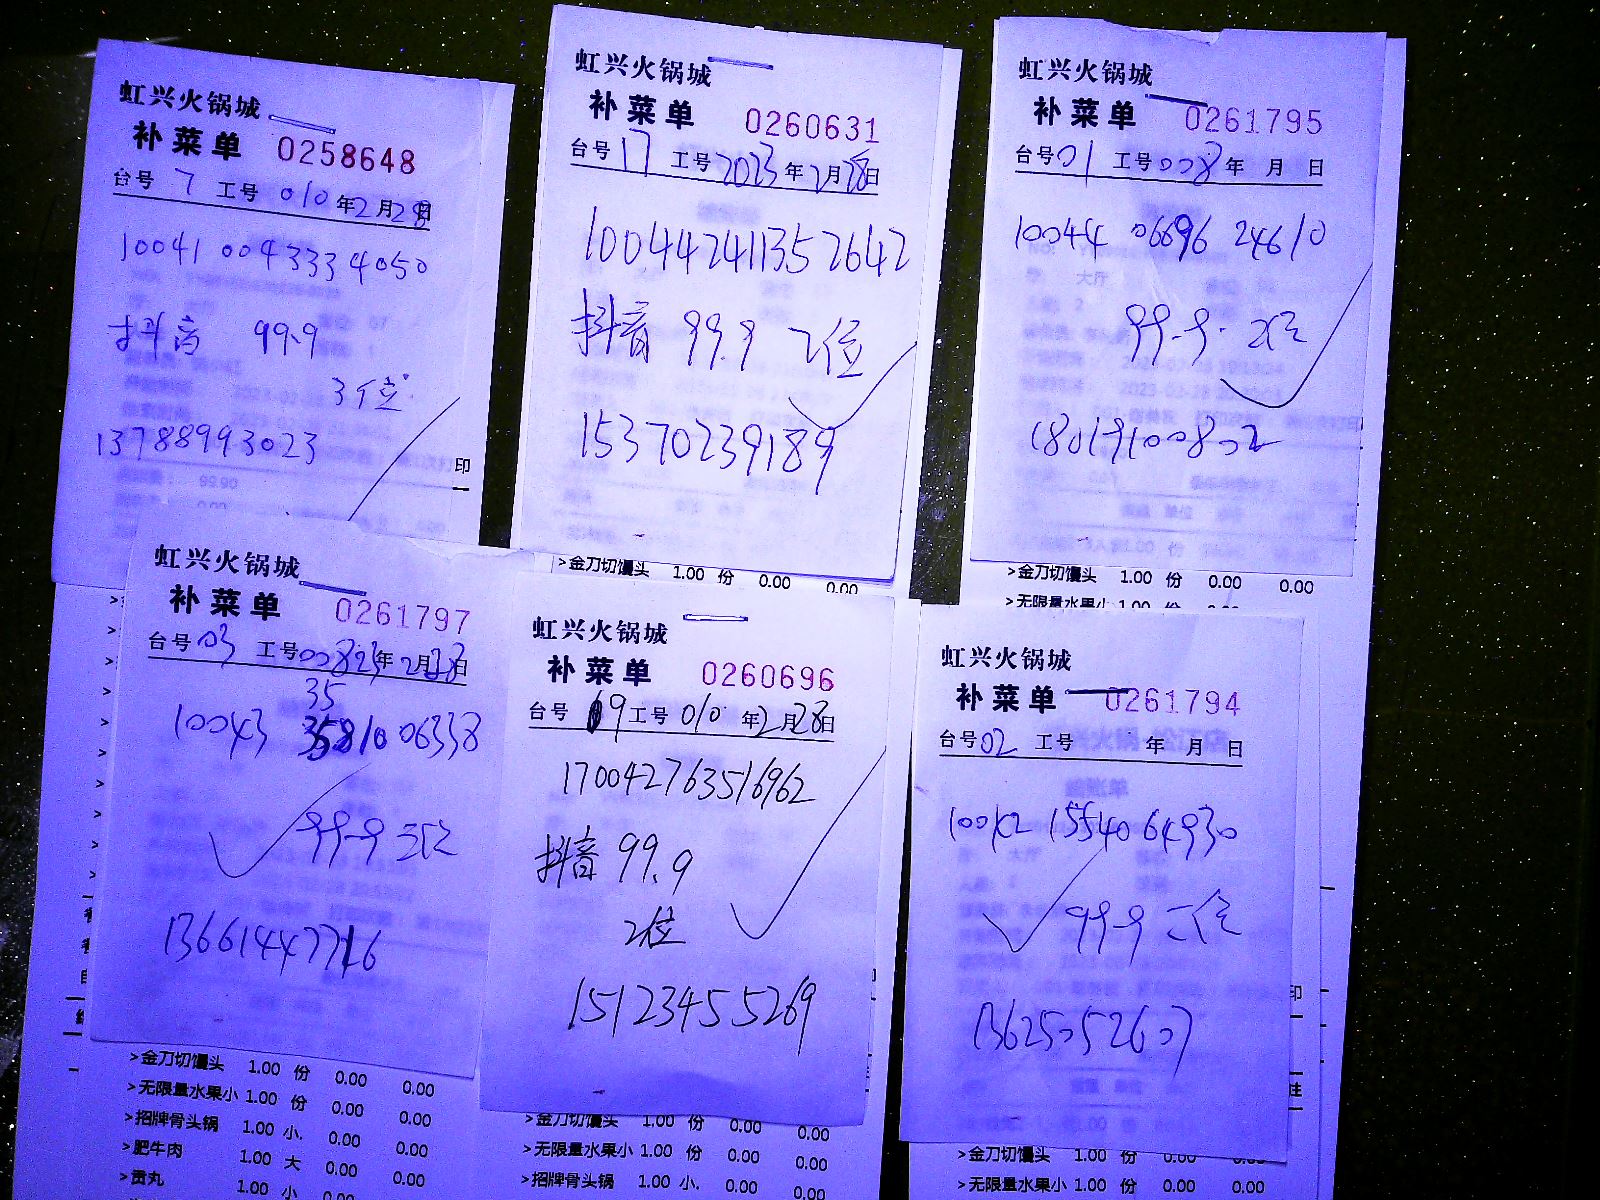 虹兴火锅城
补菜单 0258648
台号 7 工号 010 年2月28日
10041 0043334050
抖音 99.9
3个位
13788993023
印
虹兴火锅城
补菜单 0260631
台号 17 工号 2023年2月28日
100442411352642
抖音 99.9 2位
15370239189
>金刀切馒头 1.00 份 0.00 0.00
虹兴火锅城
补菜单 0261795
台号01 工号008年 月 日
10044 06696 24610
99.9. 2位
18019100802
>金刀切馒头 1.00 份 0.00 0.00
>无限量水果小 1.00 份 0.00
虹兴火锅城
补菜单 0261797
台号03 工号008 23年2月28日
35
10043 35810 06338
99.9 三位
13661447716
>金刀切馒头 1.00 份 0.00 0.00
>无限量水果小 1.00 份 0.00 0.00
>招牌骨头锅 1.00 小. 0.00 0.00
>肥牛肉 1.00 大 0.00 0.00
>贡丸 1.00 小 0.00 0.00
虹兴火锅城
补菜单 0260696
台号 09 工号 010 年2月28日
170042763516962
抖音 99.9
2位
15123455269
>金刀切馒头 1.00 份 0.00 0.00
>无限量水果小 1.00 份 0.00 0.00
>招牌骨头锅 1.00 小. 0.00 0.00
虹兴火锅城
补菜单 0261794
台号02 工号 年 月 日
10042 15540 64930
99.9 二位
13625052607
印
>金刀切馒头 1.00 份 0.00 0.00
>无限量水果小 1.00 份 0.00 0.00